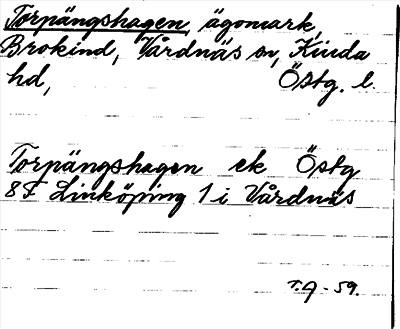 Torpängshagen, ägomark,
Brokind, Vårdnäs sn, Kinda
hd, Östg. l.
Torpängshagen ek Östg
8F Linköping 1 i Vårdnäs
T.A-59.